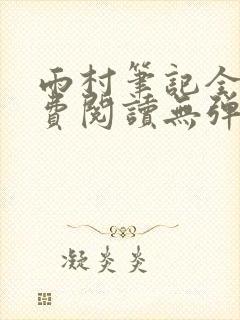 雨村筆記全
費閱讀無彈
凝炎炎